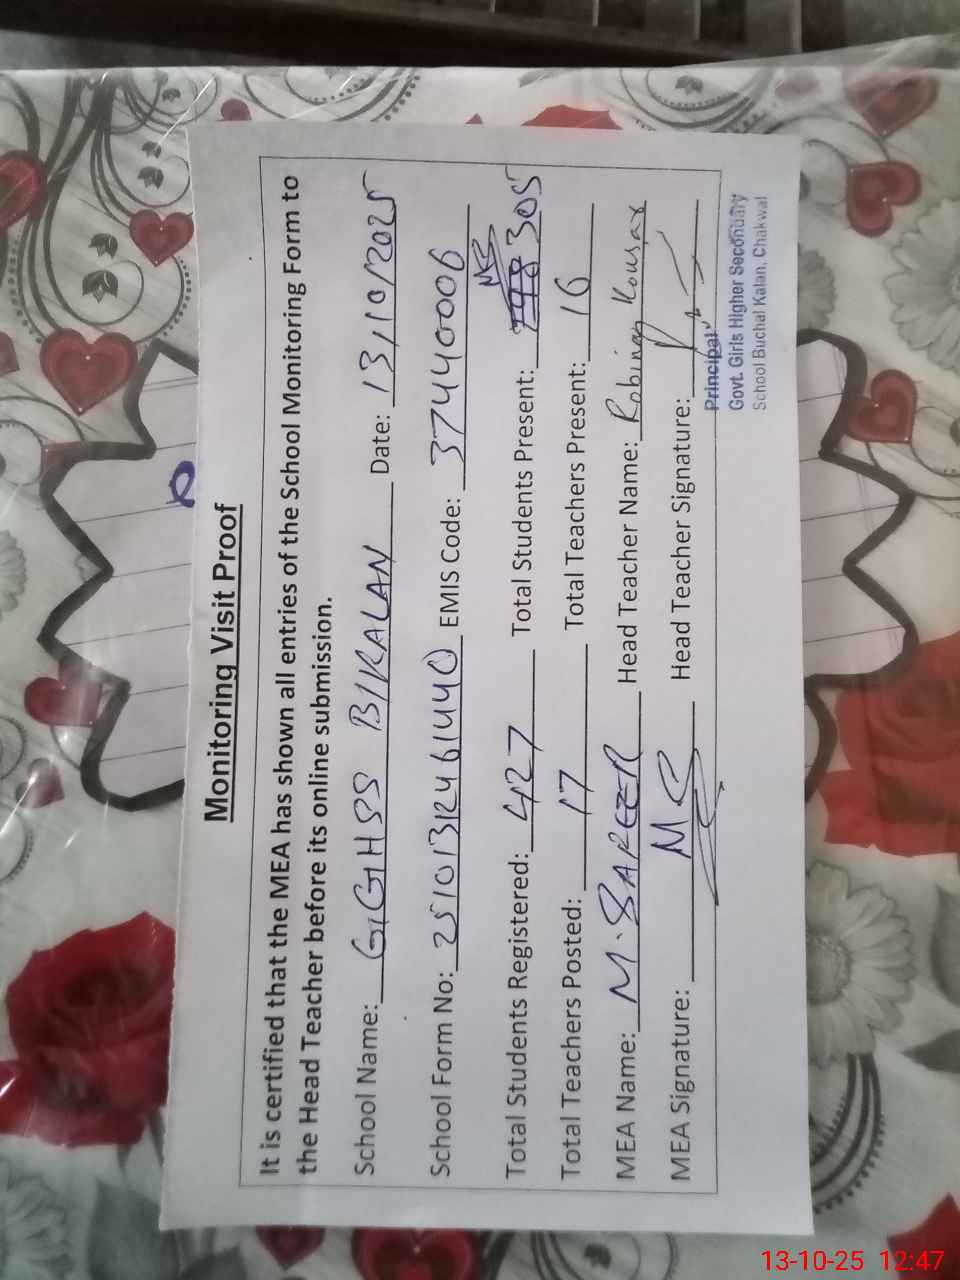 Monitoring Visit Proof
It is certified that the MEA has shown all entries of the School Monitoring Form to
the Head Teacher before its online submission.
School Name: GGHSS B/KALAN Date: 13/10/2025
School Form No: 25101312461440 EMIS Code: 37440006
Total Students Registered: 427 Total Students Present: 305
Total Teachers Posted: 17 Total Teachers Present: 16
MEA Name: M. Head Teacher Name: Robina Kousar
MEA Signature: Head Teacher Signature:
Principal
Govt. Girls Higher Secondary
School Buchal Kalan, Chakwal
13-10-25 12:47